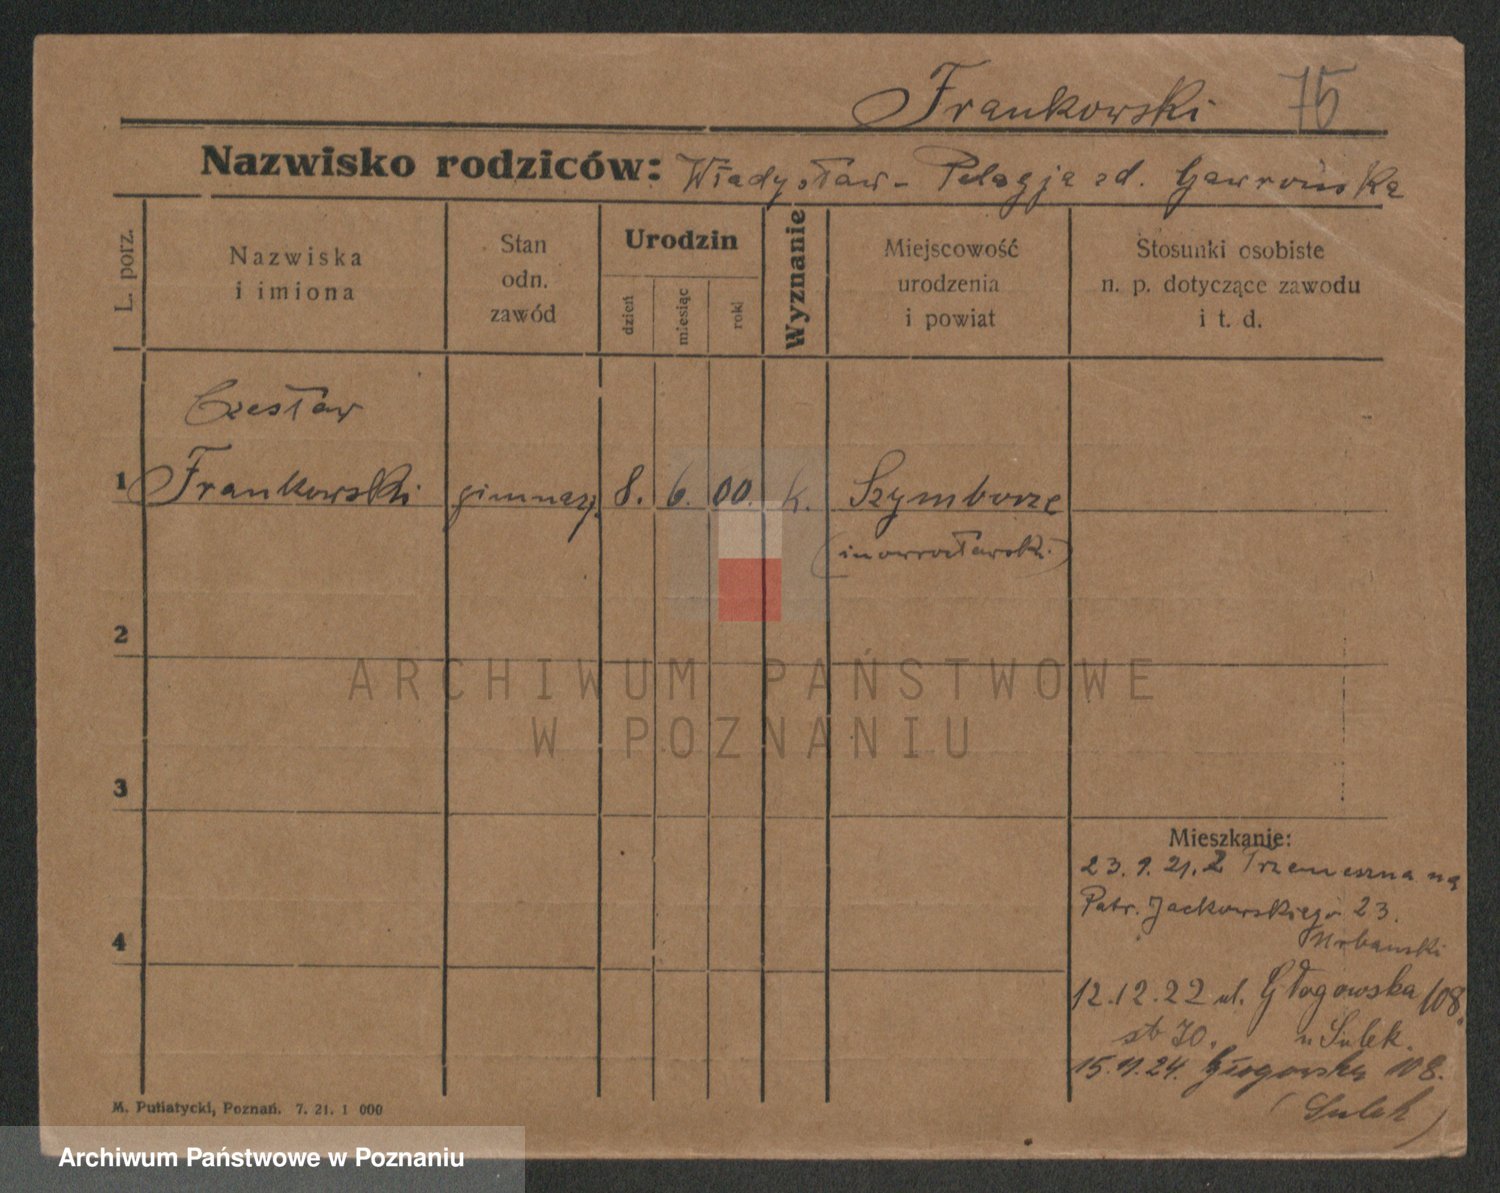 Frankowski 75
Nazwisko rodziców: Władysław - Pelagja zd. Gawrońska
L. porz.
Nazwiska
i imiona
Stan
odn.
zawód
Urodzin
dzień
miesiąc
rok
Wyznanie
Miejscowość
urodzenia
i powiat
Stosunki osobiste
n. p. dotyczące zawodu
i t. d.
Czesław
1 Frankowski gimnazj. 8. 6. 00. k. Szymborze
(inowrocławski)
2
ARCHIWUM PAŃSTWOWE
W POZNANIU
3
Mieszkanie:
23. 9. 21. Z Trzemeszna na
Patr. Jackowskiego 23.
Urbanski
4
12.12.22 ul. Głogowska 108.
u Sulek.
Głogowska 108.
(Sulek)
M. Putiatycki, Poznań. 7. 21. 1 000
Archiwum Państwowe w Poznaniu